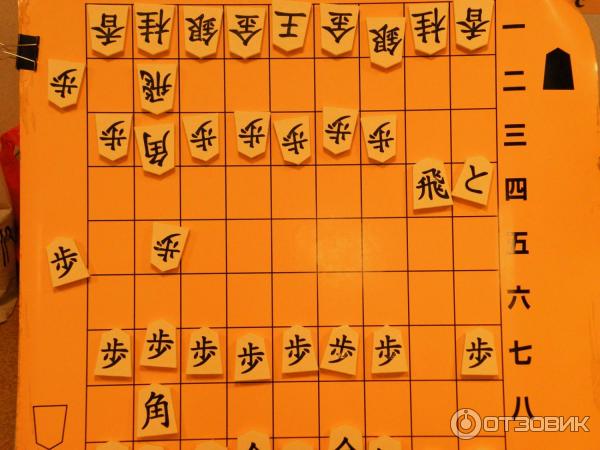 香 桂 銀 金 王 金 銀 桂 香 一
歩 飛 二
歩 角 歩 歩 歩 歩 歩 三
飛 と 四
歩 歩 五
六
歩 歩 歩 歩 歩 歩 歩 歩 七
角 八
ОТЗОВИК